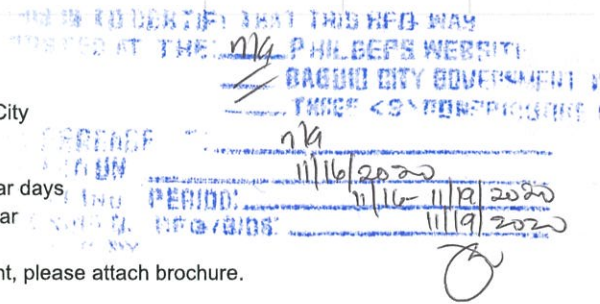 THIS IS TO CERTIFY THAT THIS RFQ WAS
POSTED AT THE: n/a PHILGEPS WEBSITE
BAGUIO CITY GOVERNMENT
THREE (3) CONSPICUOUS
City
n/a
ON 11/16/2020
ar days
PERIOD: 11/16- 11/19/2020
ar
RFQ/BIDS: 11/19/2020
nt, please attach brochure.